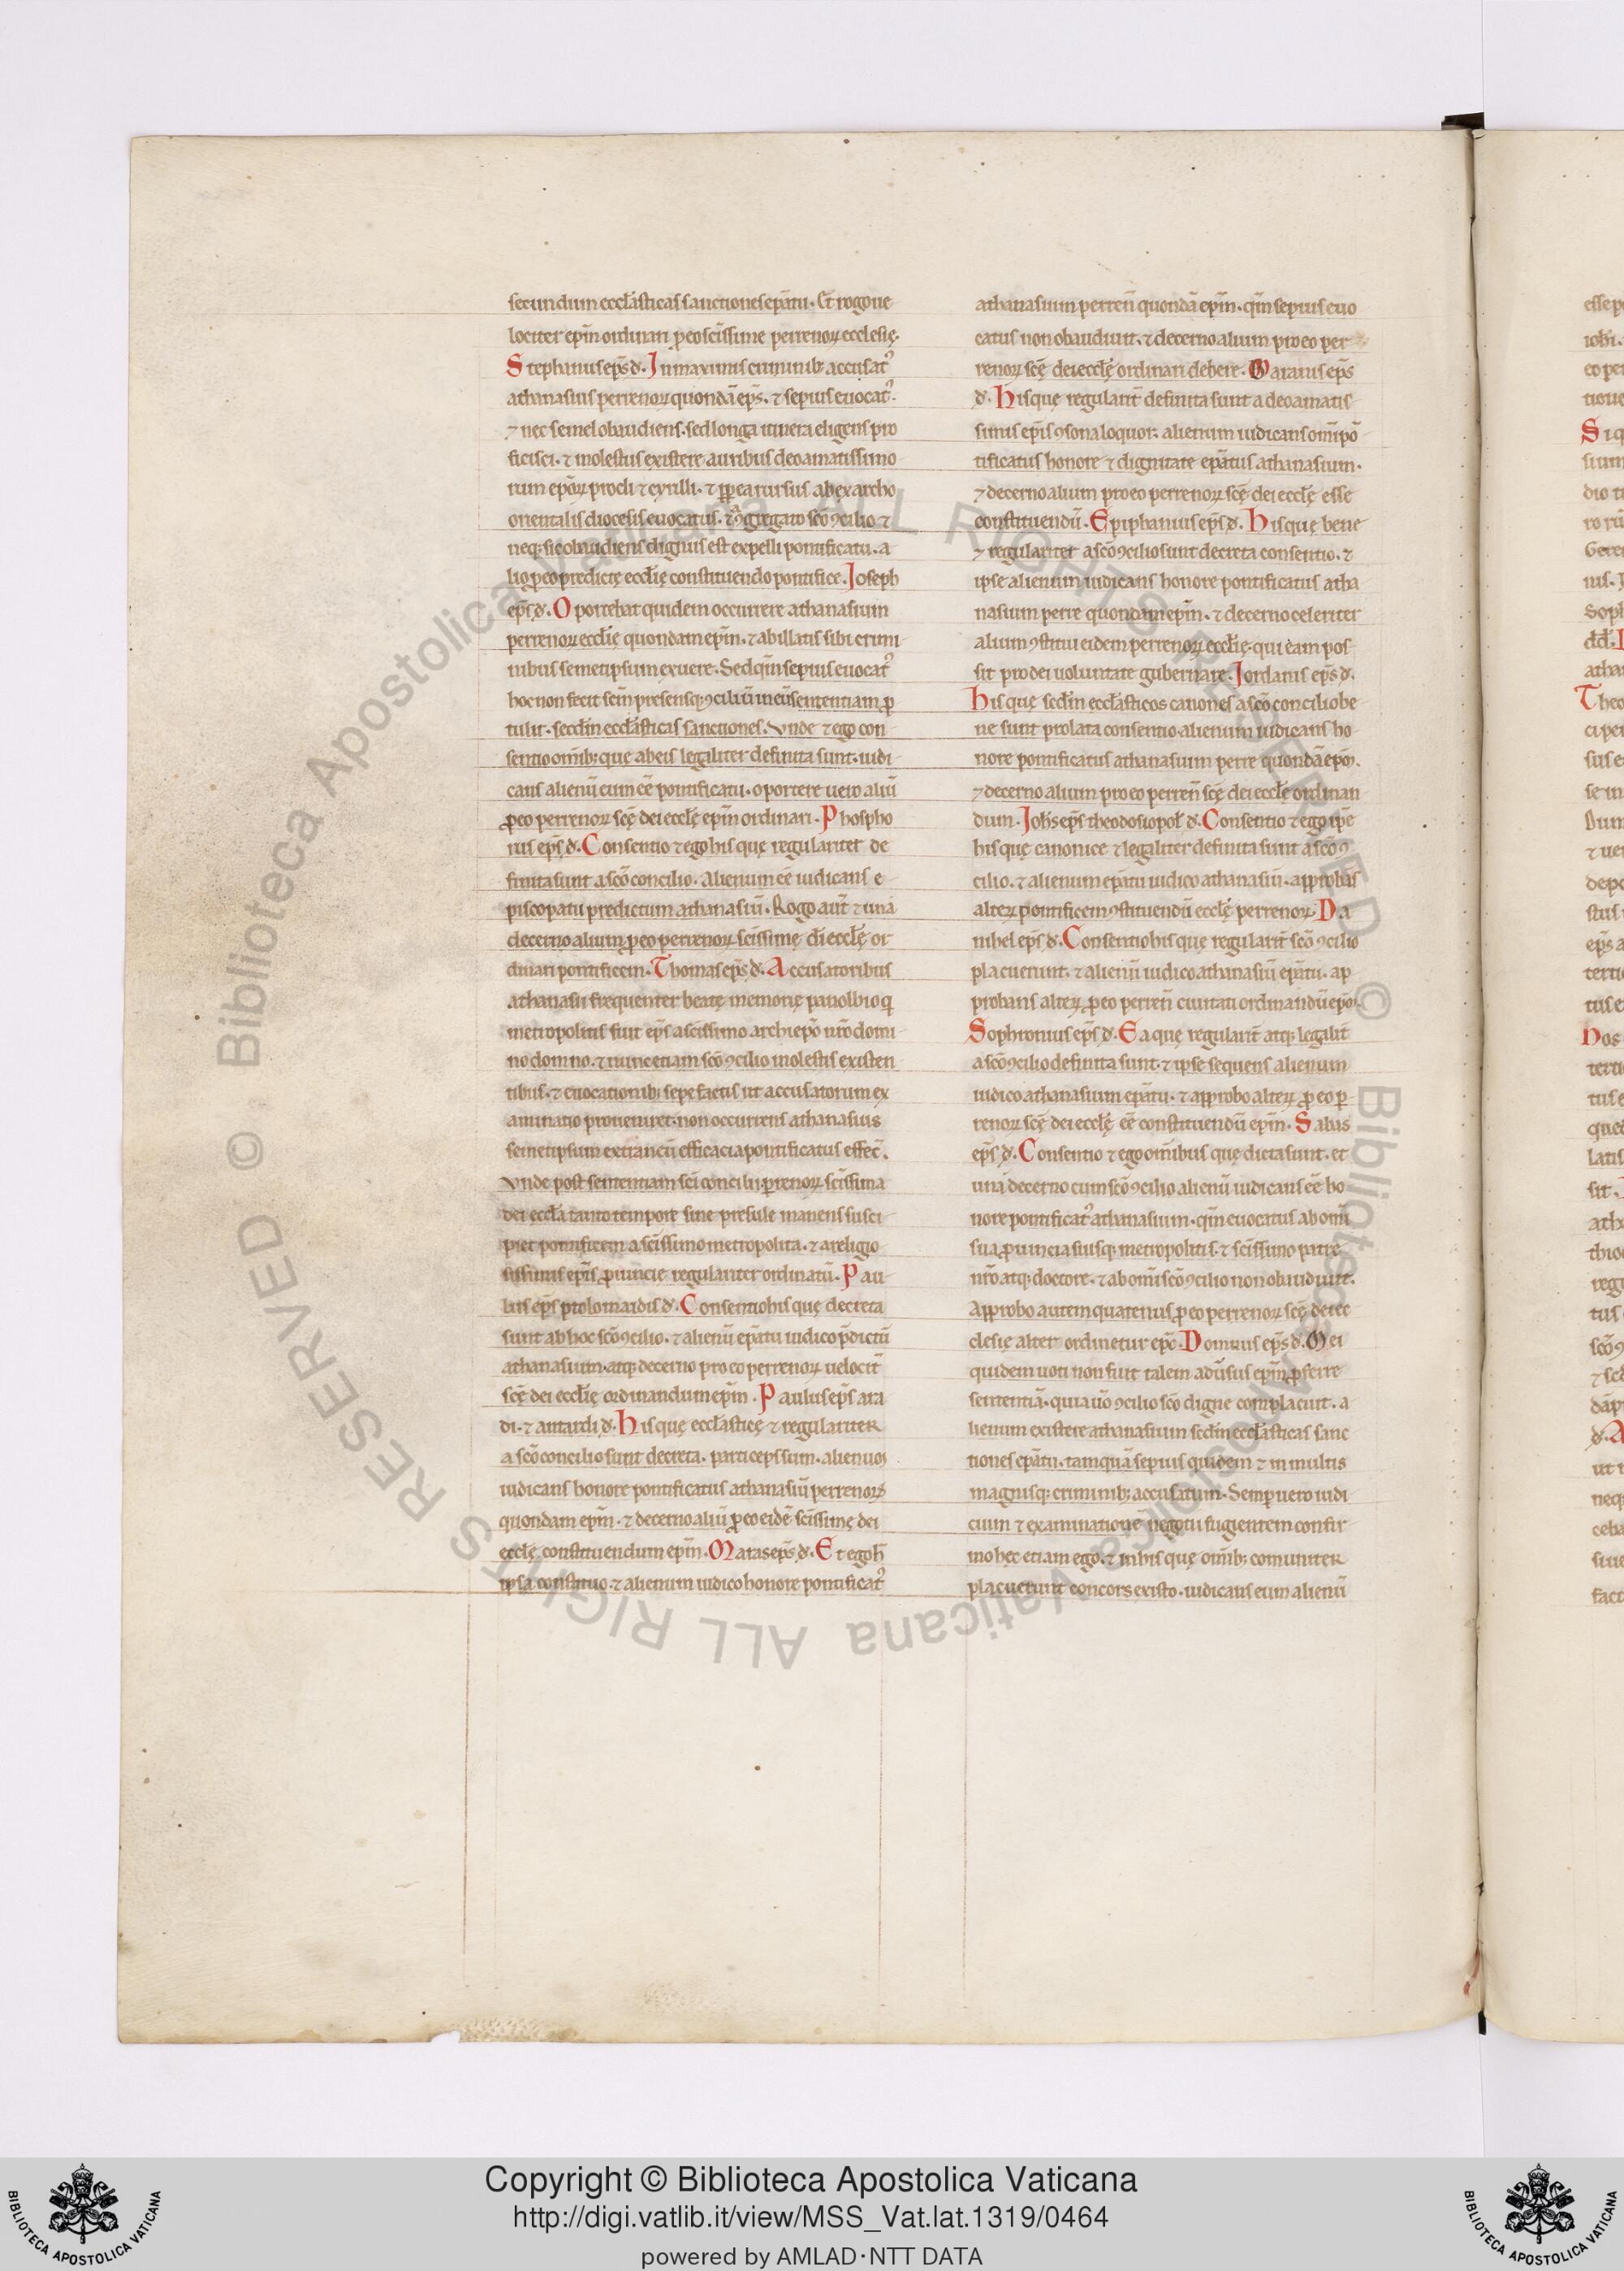 secundum eccl̄asticas sanctiones ep̄atu. Et rogo ue
lociter ep̄m ordinari p̄ eo sc̄issime perrenoꝝ ecclesię.
Stephanus ep̄s d̄. In maximis criminib; accusatꝰ
athanasius perrenoꝝ quondā ep̄s. ⁊ sepius euocatꝰ.
⁊ nec semel obaudiens. sed longa itinera eligens pro
ficisci. ⁊ molestus existere auribus deo amatissimo
rum ep̄oꝝ procli ⁊ cyrilli. ⁊ ꝓp̄ ea rursus ab exarcho
orientalis diocesis euocatus. ⁊ ꝯgregato sc̄o ꝯcilio ⁊
neq; sic obaudiens dignus est expelli pontificatu. a
lio ꝓ eo predictę eccl̄ię constituendo pontifice. Joseph
ep̄s d̄. Oportebat quidem occurrere athanasium
perrenoꝝ eccl̄ię quondam ep̄m. ⁊ ab illatis sibi crimi
nibus semetipsum exuere. Sed qm̄ sepius euocatꝰ
hoc non fecit sem̄ presensq; ꝯciliū in eū sententiam ꝓ
tulit. secd̄m eccl̄asticas sanctiones. Vnde ⁊ ego con
sentio om̄ib; que ab eis legaliter definita sunt. iudi
cans alienū eum ēē pontificatu. oportere uero aliū
ꝓ eo perrenoꝝ sc̄ę dei eccl̄ę ep̄m ordinari. Phospho
rus ep̄s d̄. Consentio ⁊ ego his quę regulariter de
finita sunt a sc̄o concilio. Alienum ēē iudicans e
piscopatu predictum athanasiū. Rogo aut̄ ⁊ una
decerno alium ꝓ eo perrenoꝝ sc̄issimę dī eccl̄ę or
dinari pontificem. Thomas ep̄s d̄. Accusatoribus
athanasii frequenter beatę memorię panolbio q
metropolitis fuit ep̄s a sc̄issimo archiep̄o nr̄o domi
no domno. ⁊ nunc etiam sc̄o ꝯcilio molestis existen
tibus. ⁊ euocationib; sepe factis ut accusatorum ex
aminatio proueniret. non occurrens athanasius
semetipsum extraneū efficacia pontificatus effec̄.
Vnde post sententiam sc̄i concilii perrenoꝝ sc̄issima
dei eccl̄a tanto tempore sine presule manens susci
piet pontificem a sc̄issimo metropolita. ⁊ a religio
sissimis ep̄is ꝓuincie regulariter ordinatū. Pau
lus ep̄s ptolomaidis d̄. Consentio his quę decreta
sunt ab hoc sc̄o ꝯcilio. ⁊ alienū ep̄atu iudico p̄dictū
athanasium. atq; decerno pro eo perrenoꝝ velocit̄
sc̄ę dei eccl̄ię ordinandum ep̄m. Paulus ep̄s ara
di. ⁊ antardi d̄. His quę eccl̄asticę ⁊ regulariter
a sc̄o concilio sunt decreta. particeps sum. alienuꝫ
iudicans honore pontificatus athanasiū perrenoꝝ
quondam ep̄m. ⁊ decerno aliū ꝓ eo eidē sc̄issimę dei
eccl̄ę constituendum ep̄m. Maras ep̄s d̄. Et ego h̄
ipsa constituo. ⁊ alienum iudico honore pontificatꝰ
athanasium perren̄ quondā ep̄m. qm̄ sepius euo
catus non obaudiuit. ⁊ decerno alium pro eo per
renoꝝ sc̄ę dei eccl̄ę ordinari debere. Maranus ep̄s
d̄. His quę regularit̄ definita sunt a deo amatis
simis ep̄is ꝯsona loquor. alienum iudicans om̄i pō
tificatus honore ⁊ dignitate ep̄atus athanasium.
⁊ decerno alium pro eo perrenoꝝ sc̄ę dei eccl̄ę esse
constituendū. Epiphanius ep̄s d̄. His quę bene
⁊ regulariter a sc̄o ꝯcilio sunt decreta consentio. ⁊
ipse alienum iudicans honore pontificatus atha
nasium perre quondam ep̄m. ⁊ decerno celeriter
alium ꝯstitui eidem perrenoꝝ eccl̄ię. qui eam pos
sit pro dei uoluntate gubernare. Jordanis ep̄s d̄.
His quę secd̄m eccl̄asticos canones a sc̄o concilio be
ne sunt prolata consentio. alienum iudicans ho
nore pontificatus athanasium perre quondā ep̄oꝝ.
⁊ decerno alium pro eo perren̄ sc̄ę dei eccl̄ę ordinan
dum. Joh̄s ep̄s theodosiopol̄ d̄. Consentio ⁊ ego ip̄e
his quę canonice ⁊ legaliter definita sunt a sc̄o ꝯ
cilio. ⁊ alienum ep̄atu iudico athanasiū. approbās
alteꝝ pontificem ꝯstituendū eccl̄ę perrenoꝝ. Da
nihel ep̄s d̄. Consentio his quę regularit̄ sc̄o ꝯcilio
placuerunt. ⁊ alienū iudico athanasiū ep̄atu. ap
probans alteꝝ ꝓ eo perren̄ ciuitati ordinandū ep̄oꝝ.
Sophronius ep̄s d̄. Ea quę regularit̄ atq; legalit̄
a sc̄o ꝯcilio definita sunt. ⁊ ipse sequens alienum
iudico athanasium ep̄atu. ⁊ approbo alteꝝ ꝓ eo p̲
renoꝝ sc̄ę dei eccl̄ę ēē constituendū ep̄m. Sabas
ep̄s d̄. Consentio ⁊ ego om̄ibus quę dicta sunt. et
una decerno cum sc̄o ꝯcilio alienū iudicans ēē ho
nore pontificatꝰ athanasium. qm̄ euocatus ab om̄i
sua ꝓuincia suisq; metropolitis. ⁊ sc̄issimo patre
nr̄o atq; doctore. ⁊ ab om̄i sc̄o ꝯcilio non obaudiuit.
Approbo autem quatenus ꝓ eo perrenoꝝ sc̄ę dei ec
clesię alter ordinetur ep̄c. Domnus ep̄s d̄. Mei
quidem uoti non fuit talem adūsus ep̄m ꝓferre
sententiā. quia ūo ꝯcilio sc̄o digne complacuit. a
lienum existere athanasium secd̄m eccl̄asticas sanc
tiones ep̄atu. tamquā sepius quidem ⁊ in multis
magnisq; criminib; accusatum. Semp̲ uero iudi
cium ⁊ examinatione negotii fugientem confir
mo hec etiam ego. ⁊ in his quę om̄ib; comuniter
placuerunt concors existo. iudicans eum alienū
Copyright © Biblioteca Apostolica Vaticana
http://digi.vatlib.it/view/MSS_Vat.lat.1319/0464
powered by AMLAD·NTT DATA